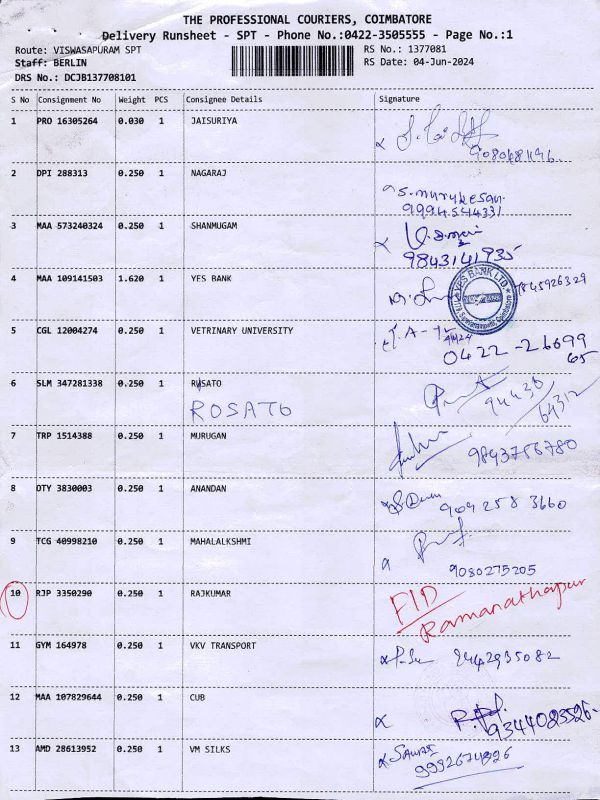 THE PROFESSIONAL COURIERS, COIMBATORE
Delivery Runsheet - SPT - Phone No.:0422-3505555 - Page No.:1
Route: VISWASAPURAM SPT
RS No.: 1377081
Staff: BERLIN
RS Date: 04-Jun-2024
DRS No.: DCJB137708101
S No Consignment No Weight PCS Consignee Details Signature
1 PRO 16305264 0.030 1 JAISURIYA
2 DPI 288313 0.250 1 NAGARAJ
S. murukesan
9994544331
3 MAA 573240324 0.250 1 SHANMUGAM
9843141935
4 MAA 109141503 1.620 1 YES BANK
YES BANK LTD
5 CGL 12004274 0.250 1 VETRINARY UNIVERSITY
0422-26699
65
6 SLM 347281338 0.250 1 RUSATO
ROSATO
94430
64312
7 TRP 1514388 0.250 1 MURUGAN
9843756780
8 OTY 3830003 0.250 1 ANANDAN
909 258 3660
9 TCG 40998210 0.250 1 MAHALALKSHMI
9080275205
10 RJP 3350290 0.250 1 RAJKUMAR
FID
Ramanathapur
11 GYM 164978 0.250 1 VKV TRANSPORT
9442935082
12 MAA 107829644 0.250 1 CUB
9344083526-
13 AMD 28613952 0.250 1 VM SILKS